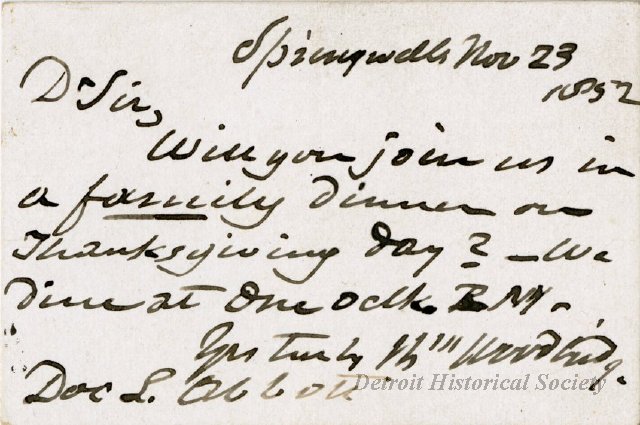 Springwells Nov 23
1852
Dr Sir,
Will you join us in
a family dinner on
Thanksgiving day? - We
dine at One oclk. P M.
Yrs truly Wm Woodbridge.
Doc L. Abbott
Detroit Historical Society